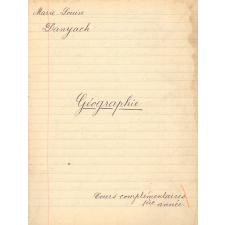 Marie-Louise
Danyach
Géographie
Cours complémentaires
1ère année